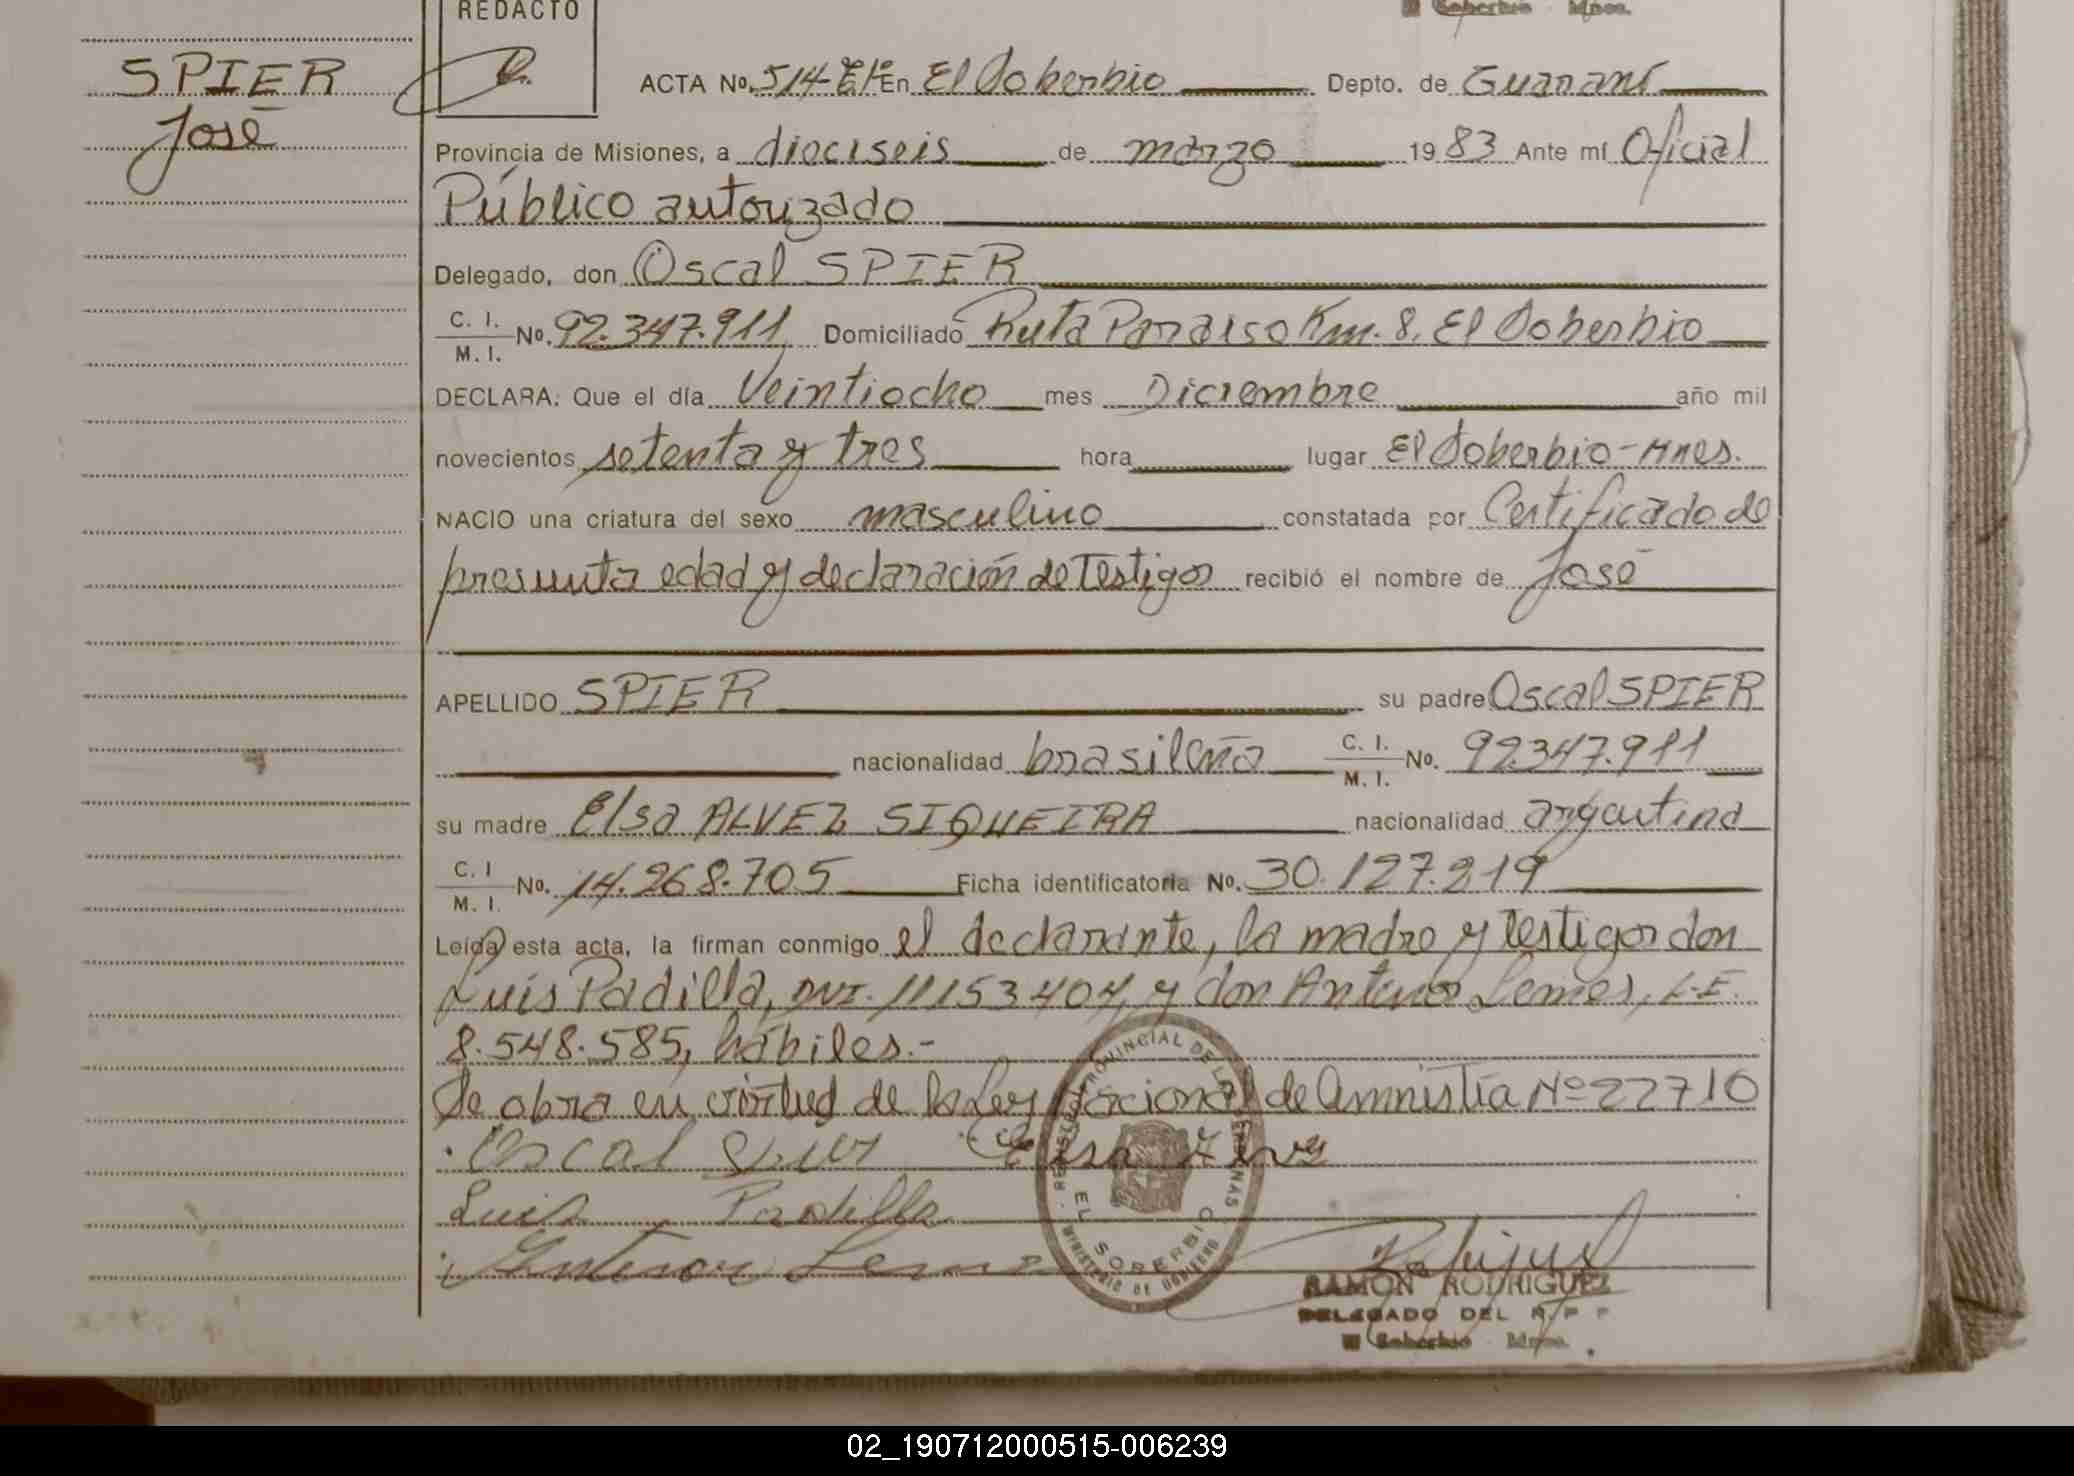 REDACTO
SPIER
José
ACTA No. 514 En El Soberbio Depto. de Guaraní
Provincia de Misiones, a dieciseis de marzo 1983 Ante mí Oficial
Público autorizado
Delegado, don Oscal SPIER
C. I. M. I. No. 92.347.911 Domiciliado Ruta Paraiso Km. 8. El Soberbio
DECLARA: Que el día Veintiocho mes Diciembre año mil
novecientos setenta y tres hora lugar El Soberbio-Mnes.
NACIO una criatura del sexo masculino constatada por Certificado de
presunta edad y declaración de Testigos recibió el nombre de José
APELLIDO SPIER su padre Oscal SPIER
nacionalidad brasileña C. I. M. I. No. 92.347.911
su madre Elsa ALVEZ SIQUEIRA nacionalidad argentina
C. I M. I. No. 14.268.705 Ficha identificatoria No. 30.127.219
Leída esta acta, la firman conmigo el declarante, la madre y testigos don
Luis Padilla, DNI. 11153404, y don Antenor Lemes, L.E.
8.548.585, hábiles.-
Se obra en virtud de la Ley Nacional de Amnistía Nº 22710
Oscal Spier Elsa Alves
Luis Padilla
Antenor Lemes
REGISTRO PROVINCIAL DE LAS PERSONAS
EL SOBERBIO
MINISTERIO DE GOBIERNO
RAMON RODRIGUEZ
DELEGADO DEL R. P. P
El Soberbio Mnes.
02_190712000515-006239